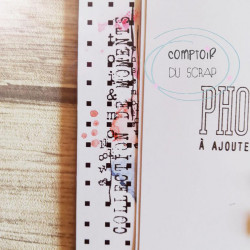 COLLECTION DE MOMENTS
COMPTOIR
DU SCRAP
PHO
À AJOUTE